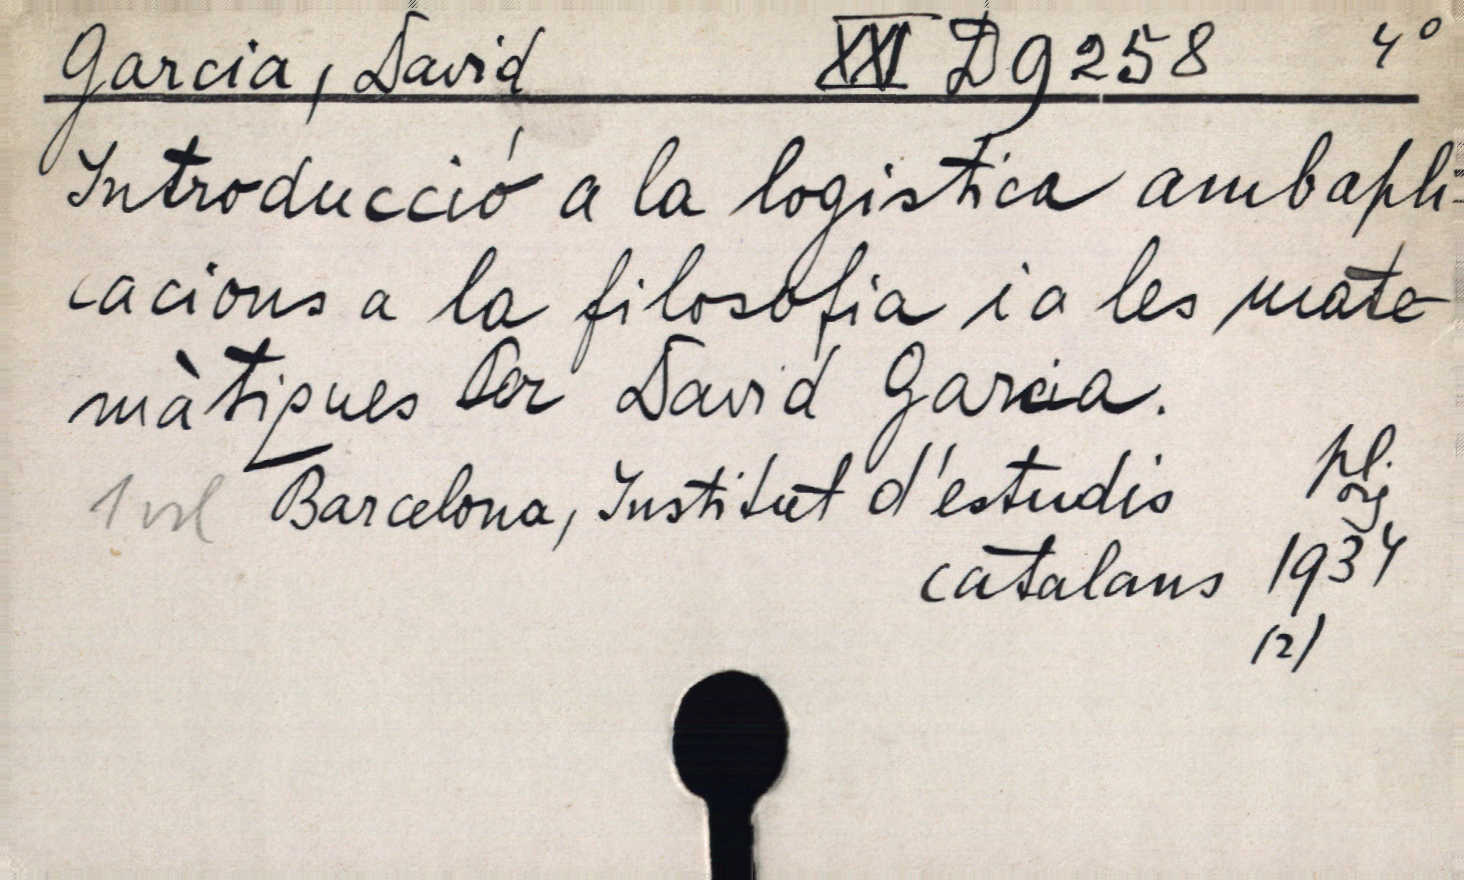 Garcia, David XXI D9258 4°
Introducció a la logistica amb apli-
cacions a la filosofia i a les mate-
màtiques Per David Garcia.
1 vol Barcelona, Institut d'estudis pl.
catalans 1934
(2)